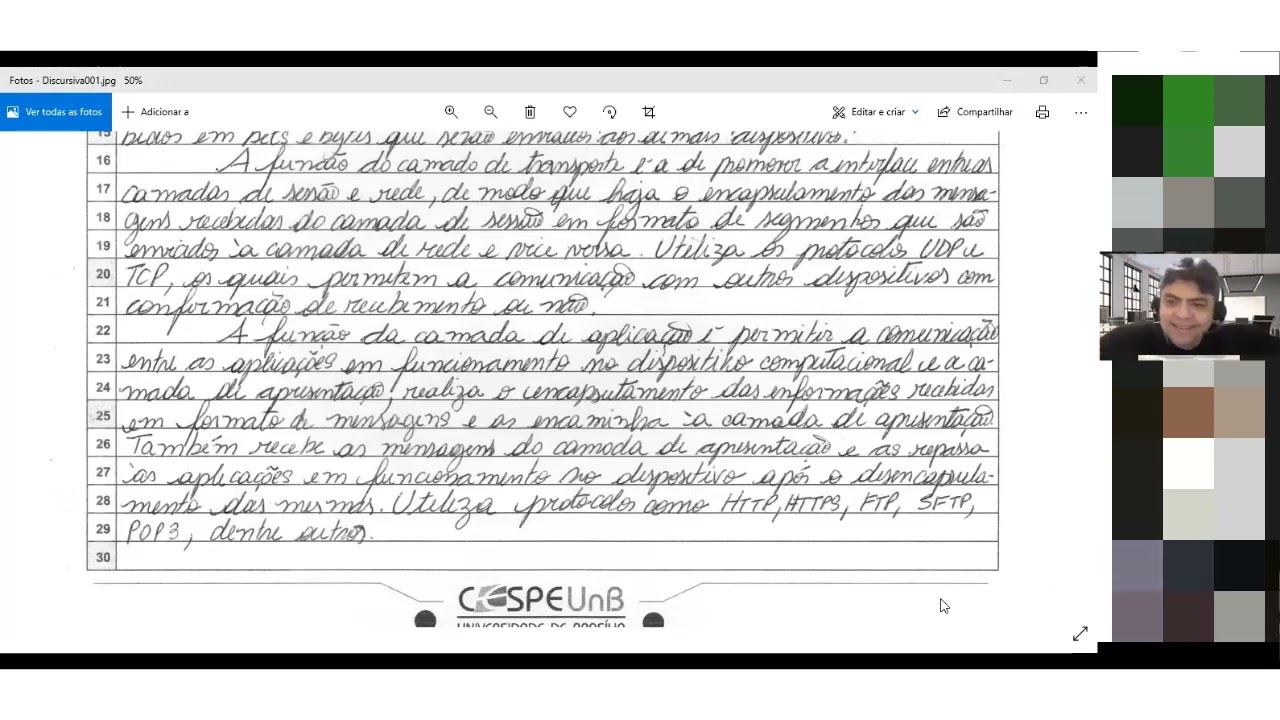 Fotos - Discursiva001.jpg 50%
Ver todas as fotos
Adicionar a
Editar e criar
Compartilhar
15 bidos em bits e bytes que serão enviados aos demais dispositivos.
16 A função do camado de transporte é a de promover a interface entre as
17 camadas de sessão e rede, de modo que haja o encapsulamento das mensa-
18 gens recebidas do camada de sessão em formato de segmentos que são
19 enviados à camada de rede e vice versa. Utiliza os protocolos UDP e
20 TCP, os quais permitem a comunicação com outros dispositivos com
21 confirmação de recebimento ou não.
22 A função da camada de aplicação é permitir a comunicação
23 entre as aplicações em funcionamento no dispositivo computacional e a ca-
24 mada de apresentação; realiza o encapsulamento das informações recebidas
25 em formato de mensagens e as encaminha à camada de apresentação.
26 Também recebe as mensagens do camada de apresentação e as repassa
27 às aplicações em funcionamento no dispositivo após o desencapsula-
28 mento das mesmas. Utiliza protocolos como HTTP, HTTPS, FTP, SFTP,
29 POP3, dentre outros.
30
CESPEUnB
UNIVERSIDADE DE BRASÍLIA